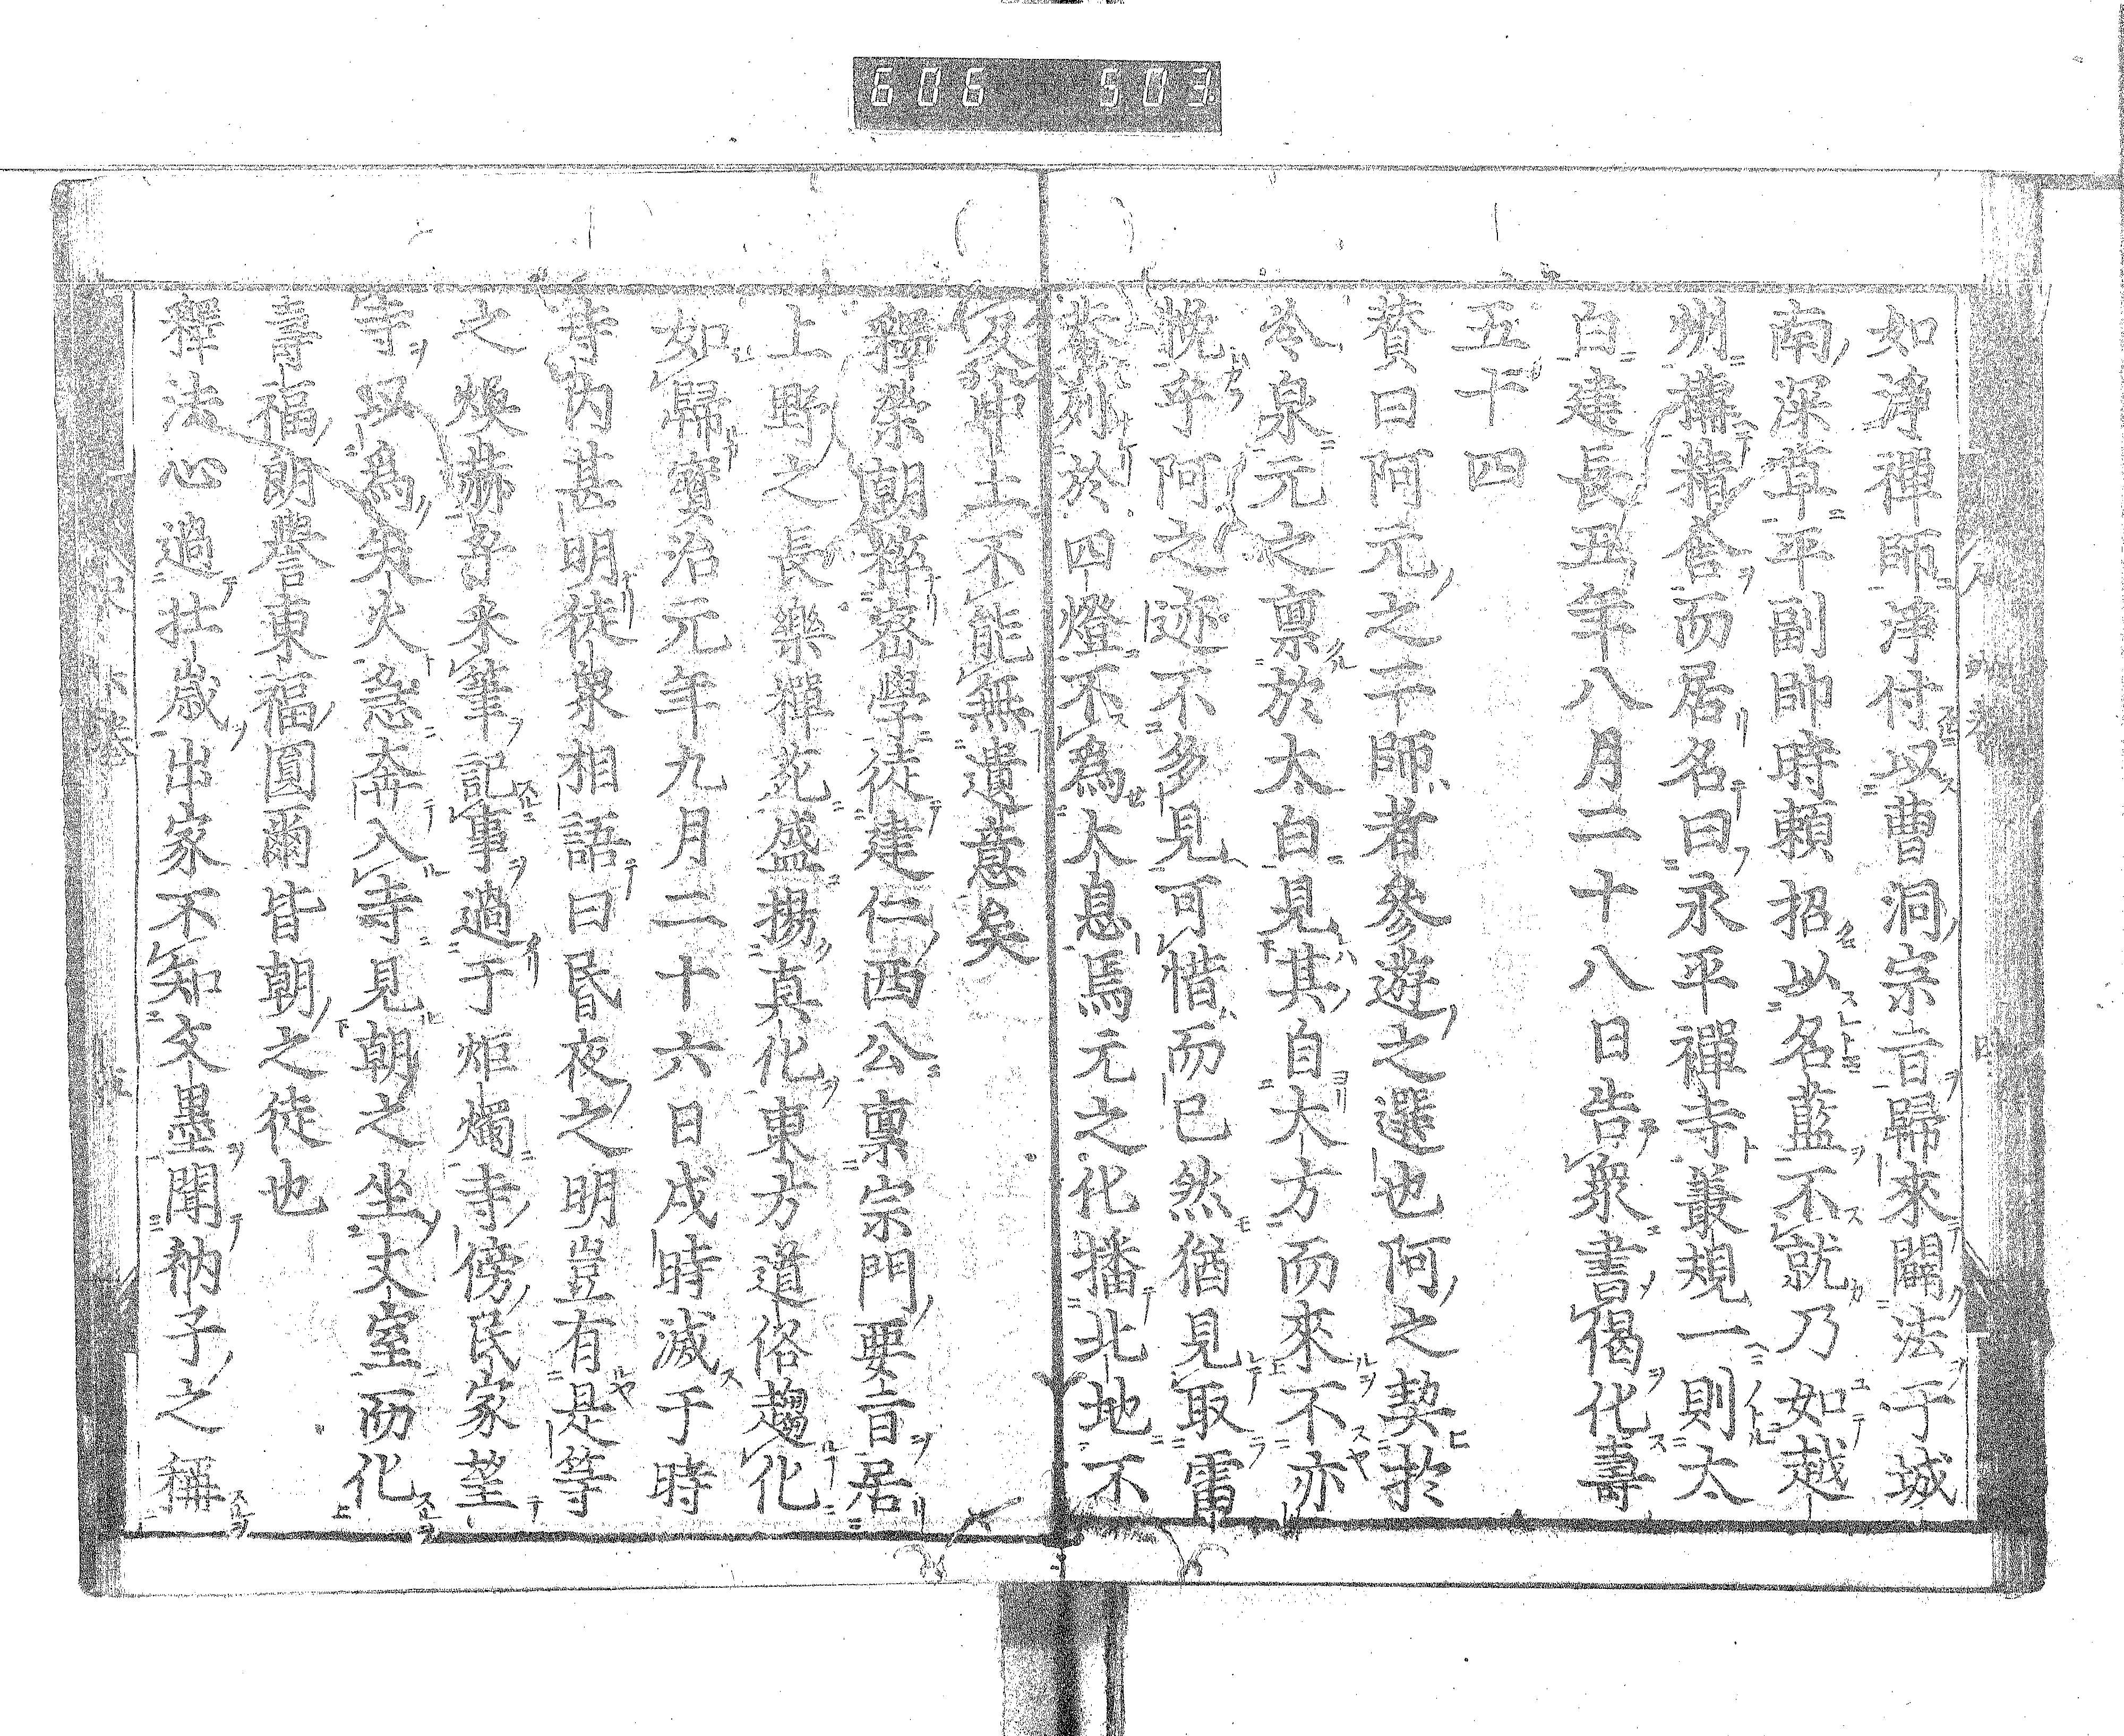 606 503
如淨禪師淨付以曹洞宗旨歸來闢法于城
南深草平副帥時頼招以名藍不就乃如越
州搆精舍而居名曰永平禪寺叢規一則太
白建長五年八月二十八日告衆書偈化壽
五十四
賛曰阿元之二師者參遊之選也阿之契於
冷泉元之禀於太白見其自大方而來不亦
恱乎阿之迹不多見可惜而已然猶見取雷
菴列於四燈不爲大息焉元之化播北地不
及中土不能無遺意矣
釋榮朝粹密學徒建仁西公禀宗門要旨居
上野之長樂禪苑盛揚真化東方道俗趨化
如歸寳治元年九月二十六日戌時滅于時
寺内甚明徒衆相語曰昏夜之明豈有是等
之煥赫吾來筆記事過于炬燭寺傍民家望
寺以爲失火急奔入寺見朝之坐丈室而化
壽福朗譽東福圓爾皆朝之徒也
釋法心過壯歳出家不知文墨聞衲子之稱